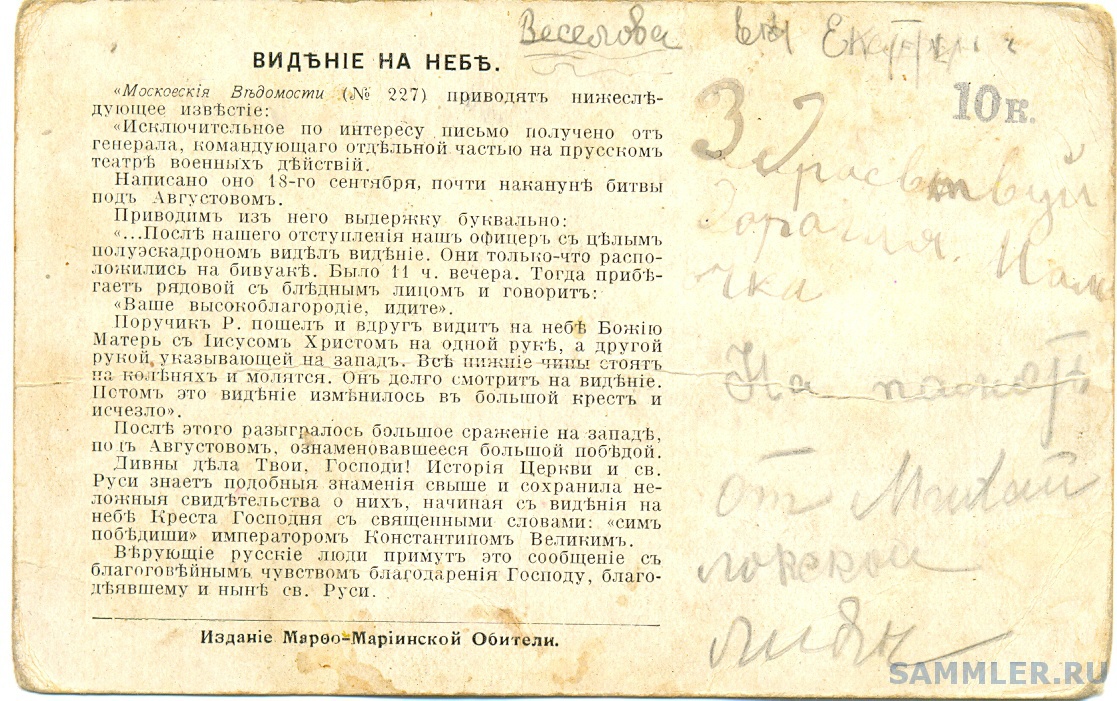 Веселова
ВИДѢНІЕ НА НЕБѢ.
«Московскія Вѣдомости (№ 227) приводятъ нижеслѣ-
дующее извѣстіе:
«Исключительное по интересу письмо получено отъ
генерала, командующаго отдѣльной частью на прусскомъ
театрѣ военныхъ дѣйствій.
Написано оно 18-го сентября, почти наканунѣ битвы
подъ Августовомъ.
Приводимъ изъ него выдержку буквально:
«...Послѣ нашего отступленія нашъ офицеръ съ цѣлымъ
полуэскадрономъ видѣлъ видѣніе. Они только-что распо-
ложились на бивуакѣ. Было 11 ч. вечера. Тогда прибѣ-
гаетъ рядовой съ блѣднымъ лицомъ и говоритъ:
«Ваше высокоблагородіе, идите».
Поручикъ Р. пошелъ и вдругъ видитъ на небѣ Божію
Матерь съ Іисусомъ Христомъ на одной рукѣ, а другой
рукой указывающей на западъ. Всѣ нижніе чины стоятъ
на колѣняхъ и молятся. Онъ долго смотритъ на видѣніе.
Потомъ это видѣніе измѣнилось въ большой крестъ и
исчезло».
Послѣ этого разыгралось большое сраженіе на западѣ,
подъ Августовомъ, ознаменовавшееся большой побѣдой.
Дивны дѣла Твои, Господи! Исторія Церкви и св.
Руси знаетъ подобныя знаменія свыше и сохранила не-
ложныя свидѣтельства о нихъ, начиная съ видѣнія на
небѣ Креста Господня съ священными словами: «симъ
побѣдиши» императоромъ Константиномъ Великимъ.
Вѣрующіе русскіе люди примутъ это сообщеніе съ
благоговѣйнымъ чувствомъ благодаренія Господу, благо-
дѣявшему и нынѣ св. Руси.
Изданіе Марѳо-Маріинской Обители.
10 к.
З
дорогая
На
от Михай
SAMMLER.RU